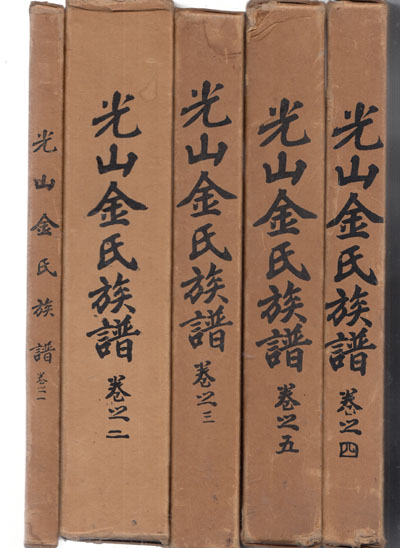 光山金氏族譜 卷之一
光山金氏族譜 卷之二
光山金氏族譜 卷之三
光山金氏族譜 卷之五
光山金氏族譜 卷之四